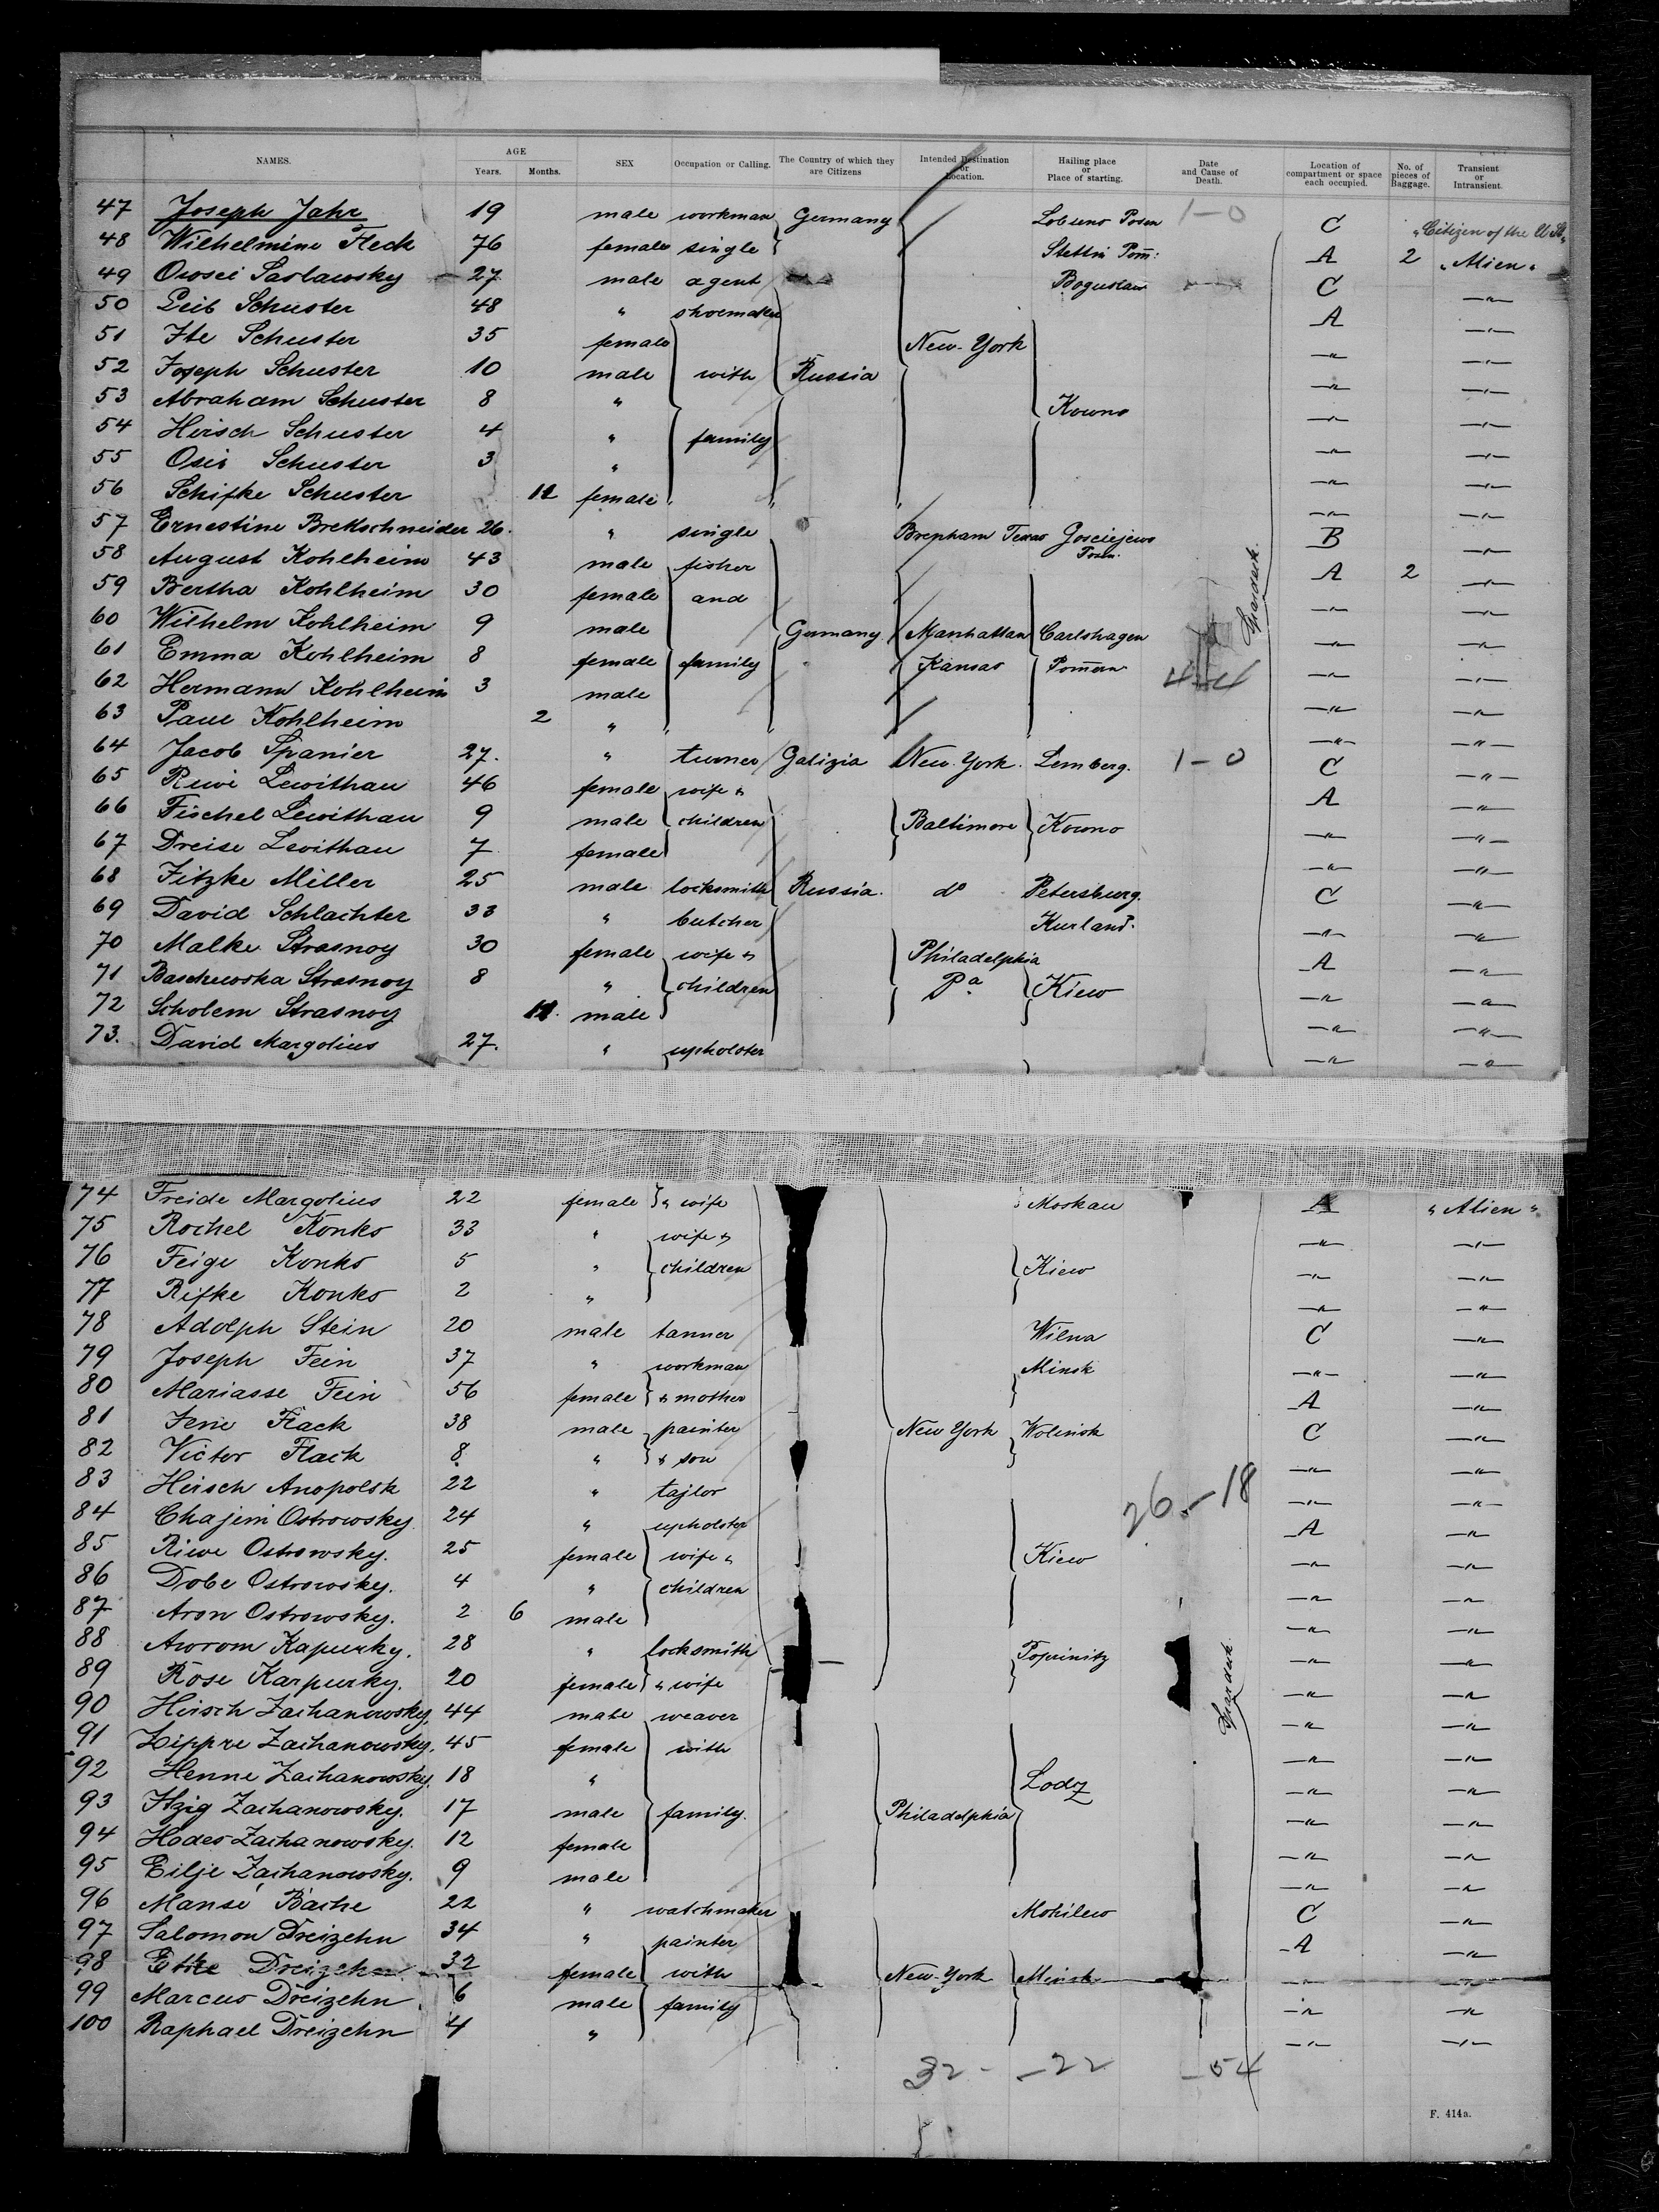 NAMES. AGE Years. Months. SEX Occupation or Calling. The Country of which they are Citizens Intended Destination or Location. Hailing place or Place of starting. Date and Cause of Death. Location of compartment or space each occupied. No. of pieces of Baggage. Transient or Intransient.
47 Joseph Jahr 19 male workman Germany Posen 1-0 C "Citizen of the U St"
48 Wilhelmine Fleck 76 female single Stettin Pom: A 2 "Alien"
49 Owsei Saslawsky 27 male agent Boguslaw C —"—
50 Leib Schuster 48 " shoemaker A —"—
51 Ite Schuster 35 female New-York —"— —"—
52 Joseph Schuster 10 male with Russia —"— —"—
53 Abraham Schuster 8 " Kowno —"— —"—
54 Hirsch Schuster 4 " family —"— —"—
55 Osir Schuster 3 " —"— —"—
56 Schifke Schuster 11 female —"— —"—
57 Ernestine Brettschneider 26. " single Brenham Texas Gosciejewo Posen. B —"—
58 August Kohlheim 43 male fisher A 2 —"—
59 Bertha Kohlheim 30 female and —"— —"—
60 Wilhelm Kohlheim 9 male Germany. Manhattan Carlshagen —"— —"—
61 Emma Kohlheim 8 female family Kansas Pommern 4-4 —"— —"—
62 Hermann Kohlheim 3 male —"— —"—
63 Paul Kohlheim 2 " —"— —"—
64 Jacob Spanier 27. " turner Galizia New-York. Lemberg. 1-0 C —"—
65 Riwe Lewithau 46 female wife & A —"—
66 Fischel Lewithau 9 male children Baltimore Kowno —"— —"—
67 Dreise Lewithau 7 female —"— —"—
68 Jitzke Miller 25 male locksmith Russia. do Petersburg. C —"—
69 David Schlachter 33 " butcher Kurland. —"— —"—
70 Malke Strasnoy 30 female wife & Philadelphia A —"—
71 Baschewska Strasnoy 8 " children Pa. Kiew —"— —"—
72 Scholem Strasnoy 11. male —"— —"—
73. David Margolius 27. " upholster —"— —"—
74 Freide Margolius 22 female & wife Moskau A "Alien"
75 Rochel Konko 33 " wife & —"— —"—
76 Feige Konko 5 " children Kiew —"— —"—
77 Rifke Konko 2 " —"— —"—
78 Adolph Stein 20 male tanner Wilna C —"—
79 Joseph Fein 37 " workman Minsk —"— —"—
80 Mariasse Fein 56 female & mother A —"—
81 Flack 38 male painter New York Wolinsk C —"—
82 Victor Flack 8. " & son —"— —"—
83 Hirsch Anopolsk 22 " tajlor 26.-18 —"— —"—
84 Chajem Ostrowsky 24 " upholster A —"—
85 Riwe Ostrowsky. 25 female wife & Kiew —"— —"—
86 Dobe Ostrowsky. 4 " children —"— —"—
87 Aron Ostrowsky. 2 6 male —"— —"—
88 Awrom Kapurky. 28 " locksmith Toprinitz —"— —"—
89 Rose Karpurky. 20 female & wife —"— —"—
90 Hirsch Zachanowsky. 44 male weaver —"— —"—
91 Zippre Zachanowsky. 45 female with —"— —"—
92 Henne Zachanowsky. 18 " Lodz —"— —"—
93 Itzig Zachanowsky. 17 male family. Philadelphia —"— —"—
94 Hodes Zachanowsky. 12 female —"— —"—
95 Eilje Zachanowsky. 9 male —"— —"—
96 Manse Bache 22 " watchmaker Mohilew C —"—
97 Salomon Dreizehn 34 " painter A —"—
98 Ettke Dreizehn 32 female with New-York Minsk —"— —"—
99 Marcus Dreizehn 6 male family —"— —"—
100 Raphael Dreizehn 4 " —"— —"—
32- -22 -54
F. 414a.